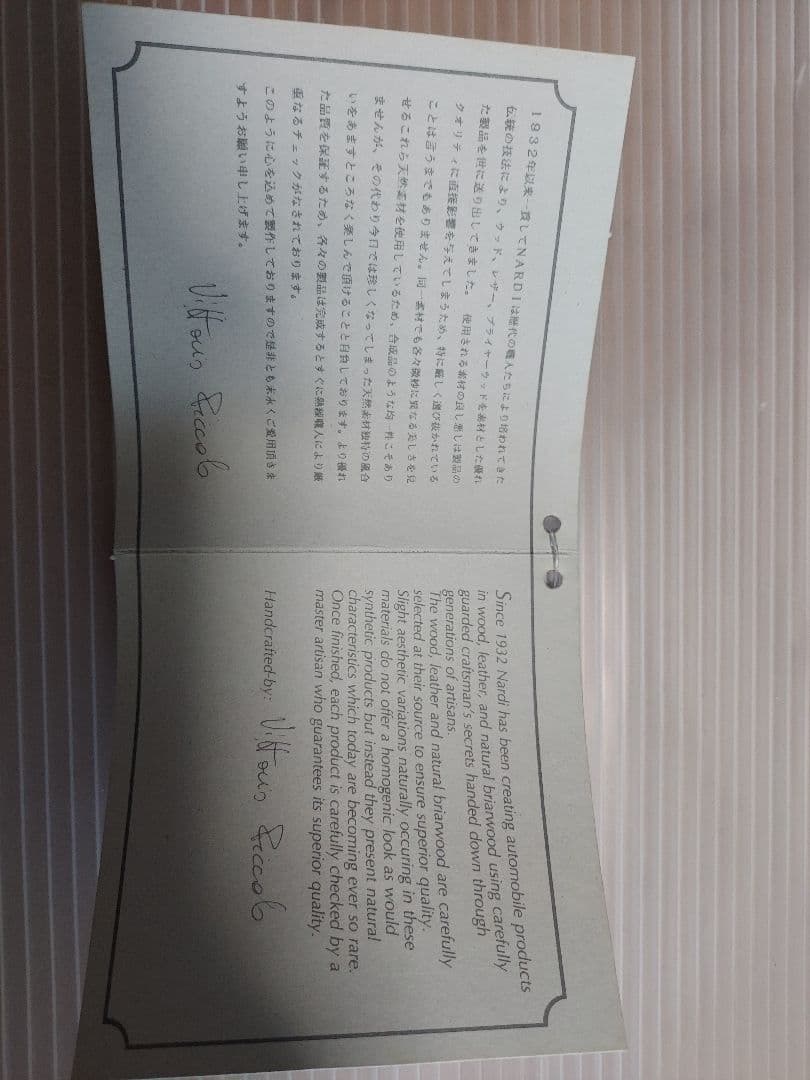 1932年以来一貫してNARDIは歴代の職人たちにより培われてきた
伝統の技法により、ウッド、レザー、ブライヤーウッドを素材とした優れ
た製品を世に送り出してきました。 使用される素材の良し悪しは製品の
クオリティに直接影響を与えてしまうため、特に厳しく選び抜かれている
ことは言うまでもありません。同一素材でも各々微妙に異なる美しさを見
せるこれら天然素材を使用しているため、合成品のような均一性こそあり
ませんが、その代わり今日では珍しくなってしまった天然素材独特の風合
いをあますところなく楽しんで頂けることと自負しております。より優れ
た品質を保証するため、各々の製品は完成するとすぐに熟練職人により厳
重なるチェックがなされております。
このように心を込めて製作しておりますので是非とも末永くご愛用頂きま
すようお願い申し上げます。
Since 1932 Nardi has been creating automobile products
in wood, leather, and natural briarwood using carefully
guarded craftsman's secrets handed down through
generations of artisans.
The wood, leather and natural briarwood are carefully
selected at their source to ensure superior quality.
Slight aesthetic variations naturally occuring in these
materials do not offer a homogenic look as would
synthetic products but instead they present natural
characteristics which today are becoming ever so rare.
Once finished, each product is carefully checked by a
master artisan who guarantees its superior quality.
Handcrafted-by: